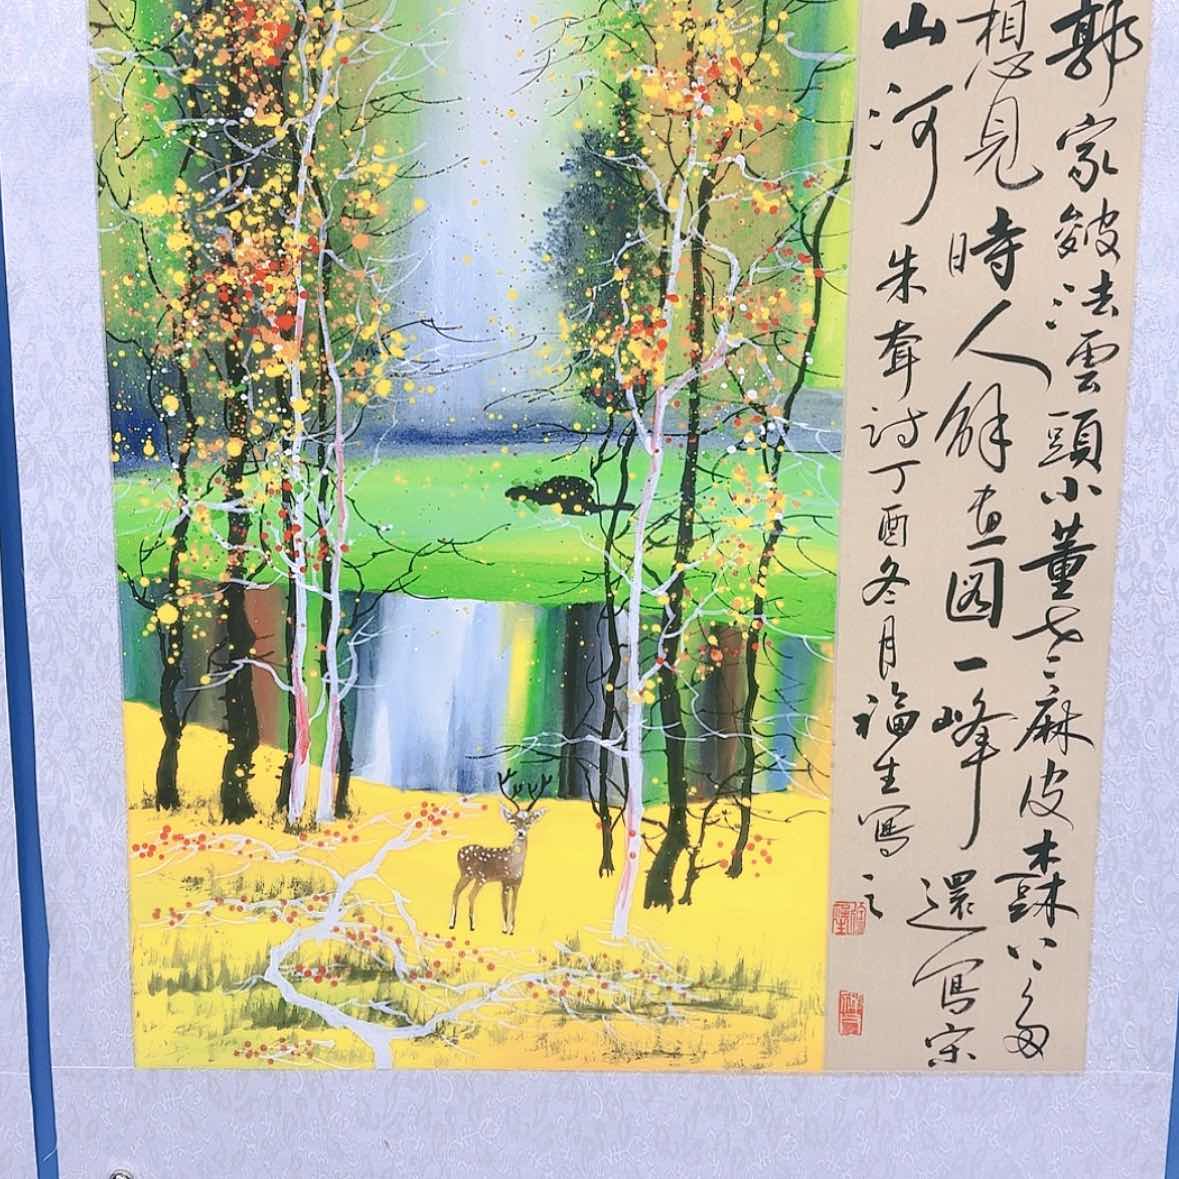 郭家皴法雲頭小董老麻皮麻上多
想見時人解畫圖一峰還寫宋
山河朱耷詩丁酉冬月福生寫之